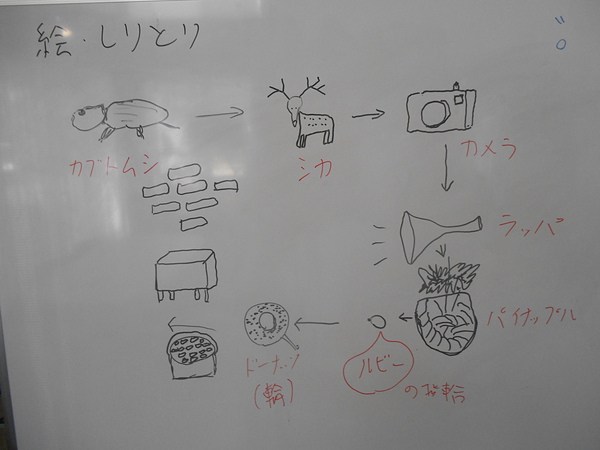 絵・しりとり
カブトムシ
シカ
カメラ
ラッパ
パイナップル
ルビー
の指輪
ドーナッツ
(輪)